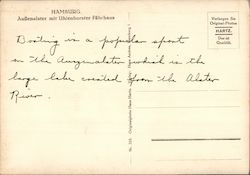 HAMBURG.
Außenalster mit Uhlenhorster Fährhaus
Verlangen Sie
Original-Photos
HARTZ.
Das ist
Qualität.
Boating is a popular sport
on the Aussenalster which is the
large lake created from the Alster
River.